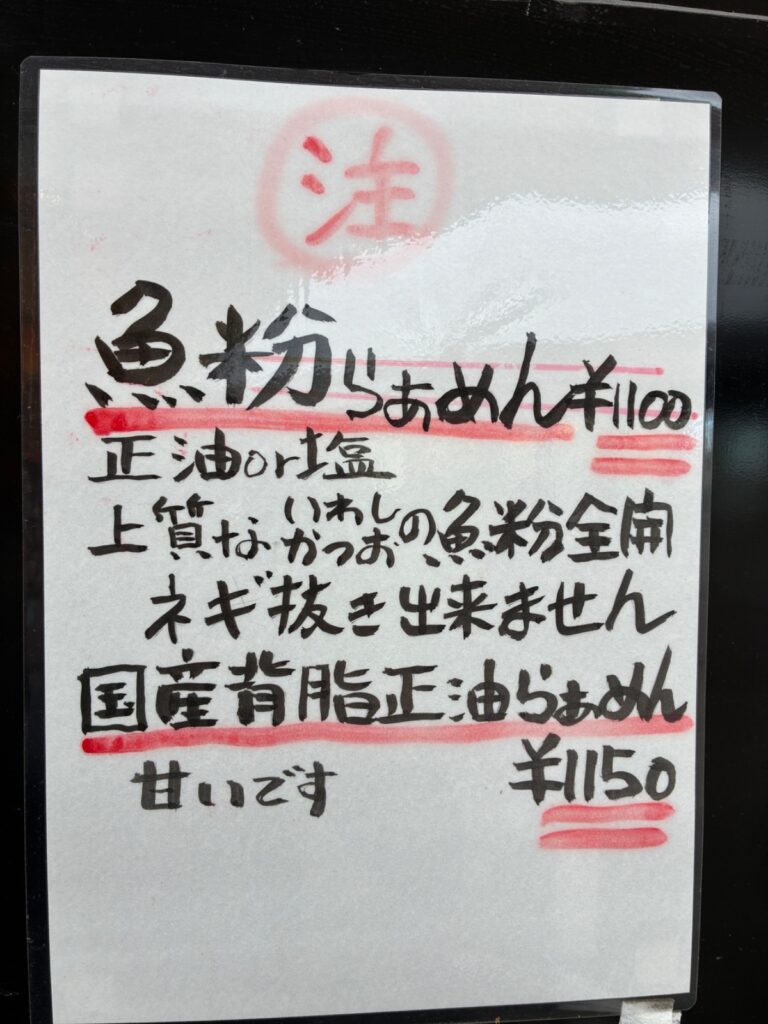 注
魚粉らぁめん¥1100
正油or塩
上質ないわしかつおの魚粉全開
ネギ抜き出来ません
国産背脂正油らぁめん
¥1150
甘いです